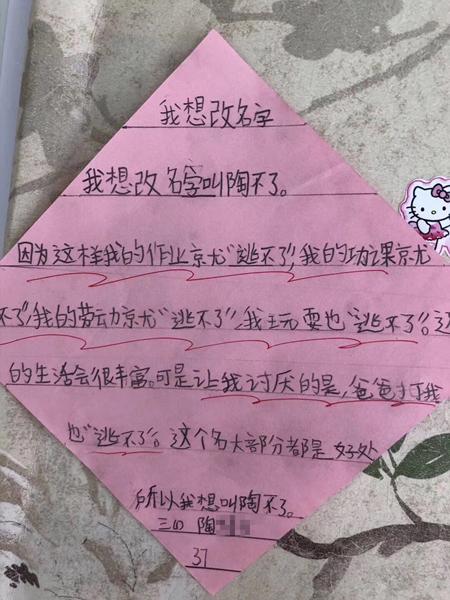 我想改名字
我想改名字叫陶不了。
因为这样我的作业就“逃不了”,我的功课就
不了”我的劳动就“逃不了”,我玩耍也“逃不了”。
的生活会很丰富。可是让我讨厌的是,爸爸打我
也“逃不了”。这个名大部分都是好处
所以我想叫陶不了。
三 陶
37